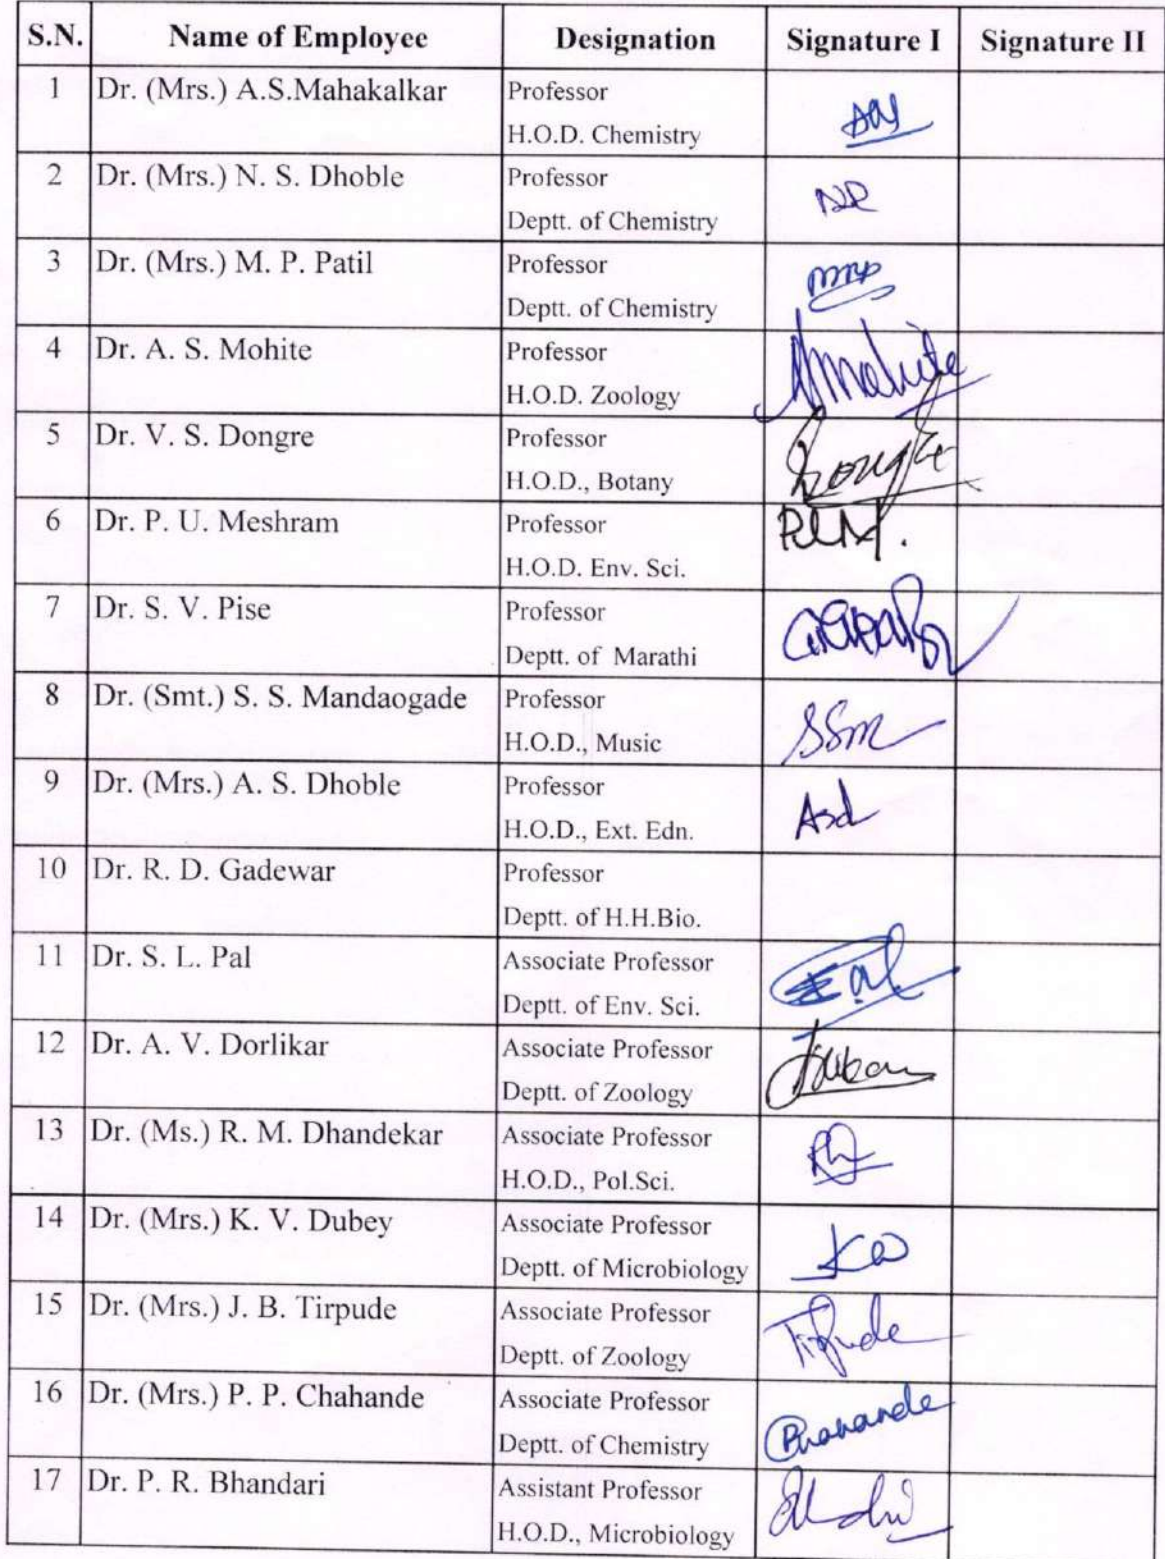 S.N. Name of Employee Designation Signature I Signature II
1 Dr. (Mrs.) A.S.Mahakalkar Professor
H.O.D. Chemistry
2 Dr. (Mrs.) N. S. Dhoble Professor
Deptt. of Chemistry
3 Dr. (Mrs.) M. P. Patil Professor
Deptt. of Chemistry
4 Dr. A. S. Mohite Professor
H.O.D. Zoology
5 Dr. V. S. Dongre Professor
H.O.D., Botany
6 Dr. P. U. Meshram Professor
H.O.D. Env. Sci.
7 Dr. S. V. Pise Professor
Deptt. of Marathi
8 Dr. (Smt.) S. S. Mandaogade Professor
H.O.D., Music
SSm
9 Dr. (Mrs.) A. S. Dhoble Professor
H.O.D., Ext. Edn.
Asd
10 Dr. R. D. Gadewar Professor
Deptt. of H.H.Bio.
11 Dr. S. L. Pal Associate Professor
Deptt. of Env. Sci.
12 Dr. A. V. Dorlikar Associate Professor
Deptt. of Zoology
13 Dr. (Ms.) R. M. Dhandekar Associate Professor
H.O.D., Pol.Sci.
14 Dr. (Mrs.) K. V. Dubey Associate Professor
Deptt. of Microbiology
15 Dr. (Mrs.) J. B. Tirpude Associate Professor
Deptt. of Zoology
Tirpude
16 Dr. (Mrs.) P. P. Chahande Associate Professor
Deptt. of Chemistry
17 Dr. P. R. Bhandari Assistant Professor
H.O.D., Microbiology